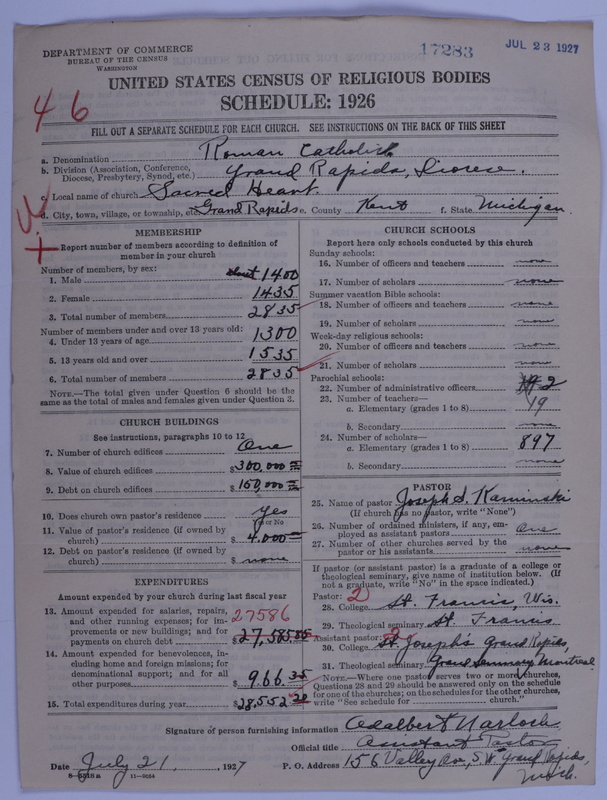 DEPARTMENT OF COMMERCE
BUREAU OF THE CENSUS
WASHINGTON
17283
JUL 23 1927
UNITED STATES CENSUS OF RELIGIOUS BODIES
SCHEDULE: 1926
46
FILL OUT A SEPARATE SCHEDULE FOR EACH CHURCH. SEE INSTRUCTIONS ON THE BACK OF THIS SHEET
a. Denomination Roman Catholic
b. Division (Association, Conference, Diocese, Presbytery, Synod, etc.) Grand Rapids, Diocese.
c. Local name of church Sacred Heart.
d. City, town, village, or township, etc. Grand Rapids e. County Kent f. State Michigan
MEMBERSHIP
Report number of members according to definition of
member in your church
Number of members, by sex:
1. Male about 1400
2. Female 1435
3. Total number of members 2835
Number of members under and over 13 years old:
4. Under 13 years of age 1300
5. 13 years old and over 1535
6. Total number of members 2835
NOTE.—The total given under Question 6 should be the
same as the total of males and females given under Question 3.
CHURCH BUILDINGS
See instructions, paragraphs 10 to 12
7. Number of church edifices One
8. Value of church edifices $300,000
9. Debt on church edifices $150,000
10. Does church own pastor's residence? yes
Yes or No
11. Value of pastor's residence (if owned by
church) $4,000
12. Debt on pastor's residence (if owned by
church) $ none
EXPENDITURES
Amount expended by your church during last fiscal year
13. Amount expended for salaries, repairs,
and other running expenses; for im-
provements or new buildings; and for
payments on church debt 27586 $27,585.85
14. Amount expended for benevolences, in-
cluding home and foreign missions; for
denominational support; and for all
other purposes $966.35
15. Total expenditures during year $28,552.20
CHURCH SCHOOLS
Report here only schools conducted by this church
Sunday schools:
16. Number of officers and teachers none
17. Number of scholars none
Summer vacation Bible schools:
18. Number of officers and teachers none
19. Number of scholars none
Week-day religious schools:
20. Number of officers and teachers none
21. Number of scholars none
Parochial schools:
22. Number of administrative officers 2
23. Number of teachers—
a. Elementary (grades 1 to 8) 19
b. Secondary none
24. Number of scholars—
a. Elementary (grades 1 to 8) 897
b. Secondary none
PASTOR
25. Name of pastor Joseph S. Kaminski
(If church has no pastor, write "None")
26. Number of ordained ministers, if any, em-
ployed as assistant pastors One
27. Number of other churches served by the
pastor or his assistants none
If pastor (or assistant pastor) is a graduate of a college or
theological seminary, give name of institution below. (If
not a graduate, write "No" in the space indicated.)
Pastor: 2
28. College St. Francis, Wis.
29. Theological seminary St. Francis
Assistant pastor:
30. College St. Joseph's Grand Rapids,
31. Theological seminary Grand Seminary Montreal
NOTE.—Where one pastor serves two or more churches,
Questions 28 and 29 should be answered only on the schedule
for one of the churches; on the schedules for the other churches,
write "See schedule for church."
Signature of person furnishing information Adalbert Narloch
Official title Assistant Pastor
Date July 21, 1927 P. O. Address 156 Valley Av., S.W. Grand Rapids,
Mich.
8—5518a 11—9264